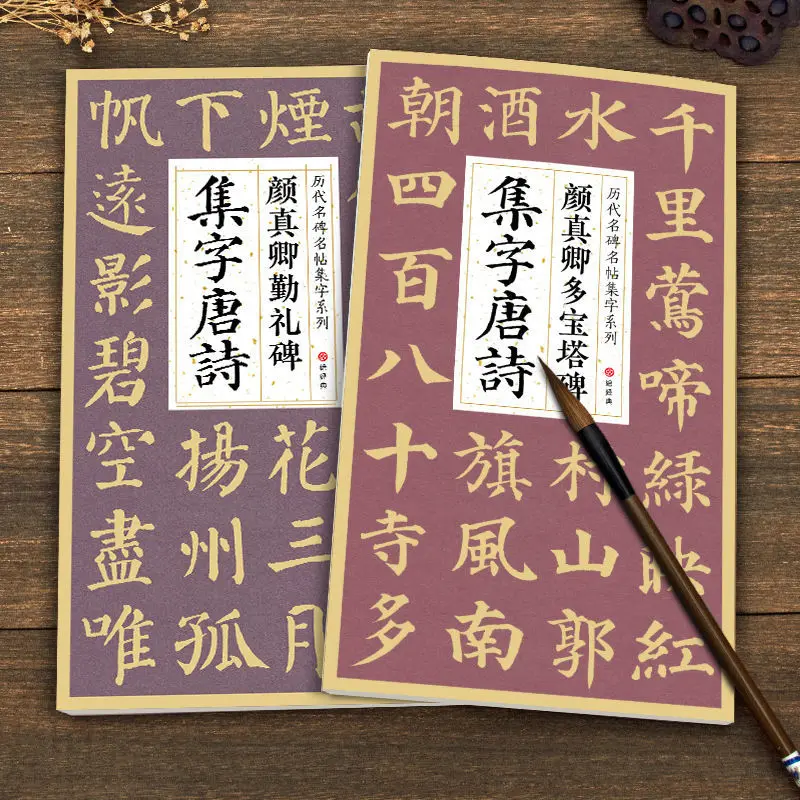 煙花三月
下揚州孤
帆遠影碧空盡唯
历代名碑名帖集字系列
绘经典
颜真卿勤礼碑
集字唐詩
千里鶯啼緑映紅
水村山郭
酒旗風南
朝四百八十寺多
历代名碑名帖集字系列
绘经典
颜真卿多宝塔碑
集字唐詩